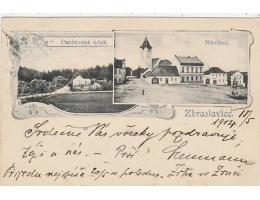 Panžovské údolí.
Náměstí.
Zbraslavice. 18/5
1904
Srdečně Vás všecky pozdravuje
těší u nás. - Neumann
Přijedu nejspíše 20/5 odpoledne. Zítra ve Zruči